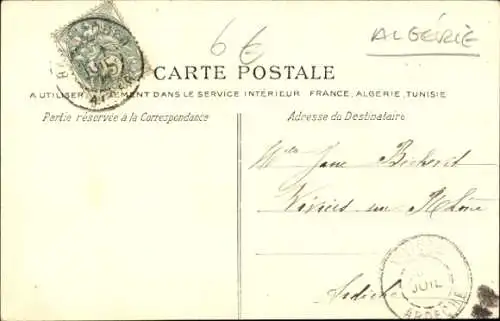 6€
ALGÉRIE
CARTE POSTALE
A UTILISER SEULEMENT DANS LE SERVICE INTÉRIEUR FRANCE, ALGERIE, TUNISIE
Partie réservée à la Correspondance
Adresse du Destinataire
Mlle Jane
Viviers sur Rhône
Ardèche
JUIL
ARDECHE